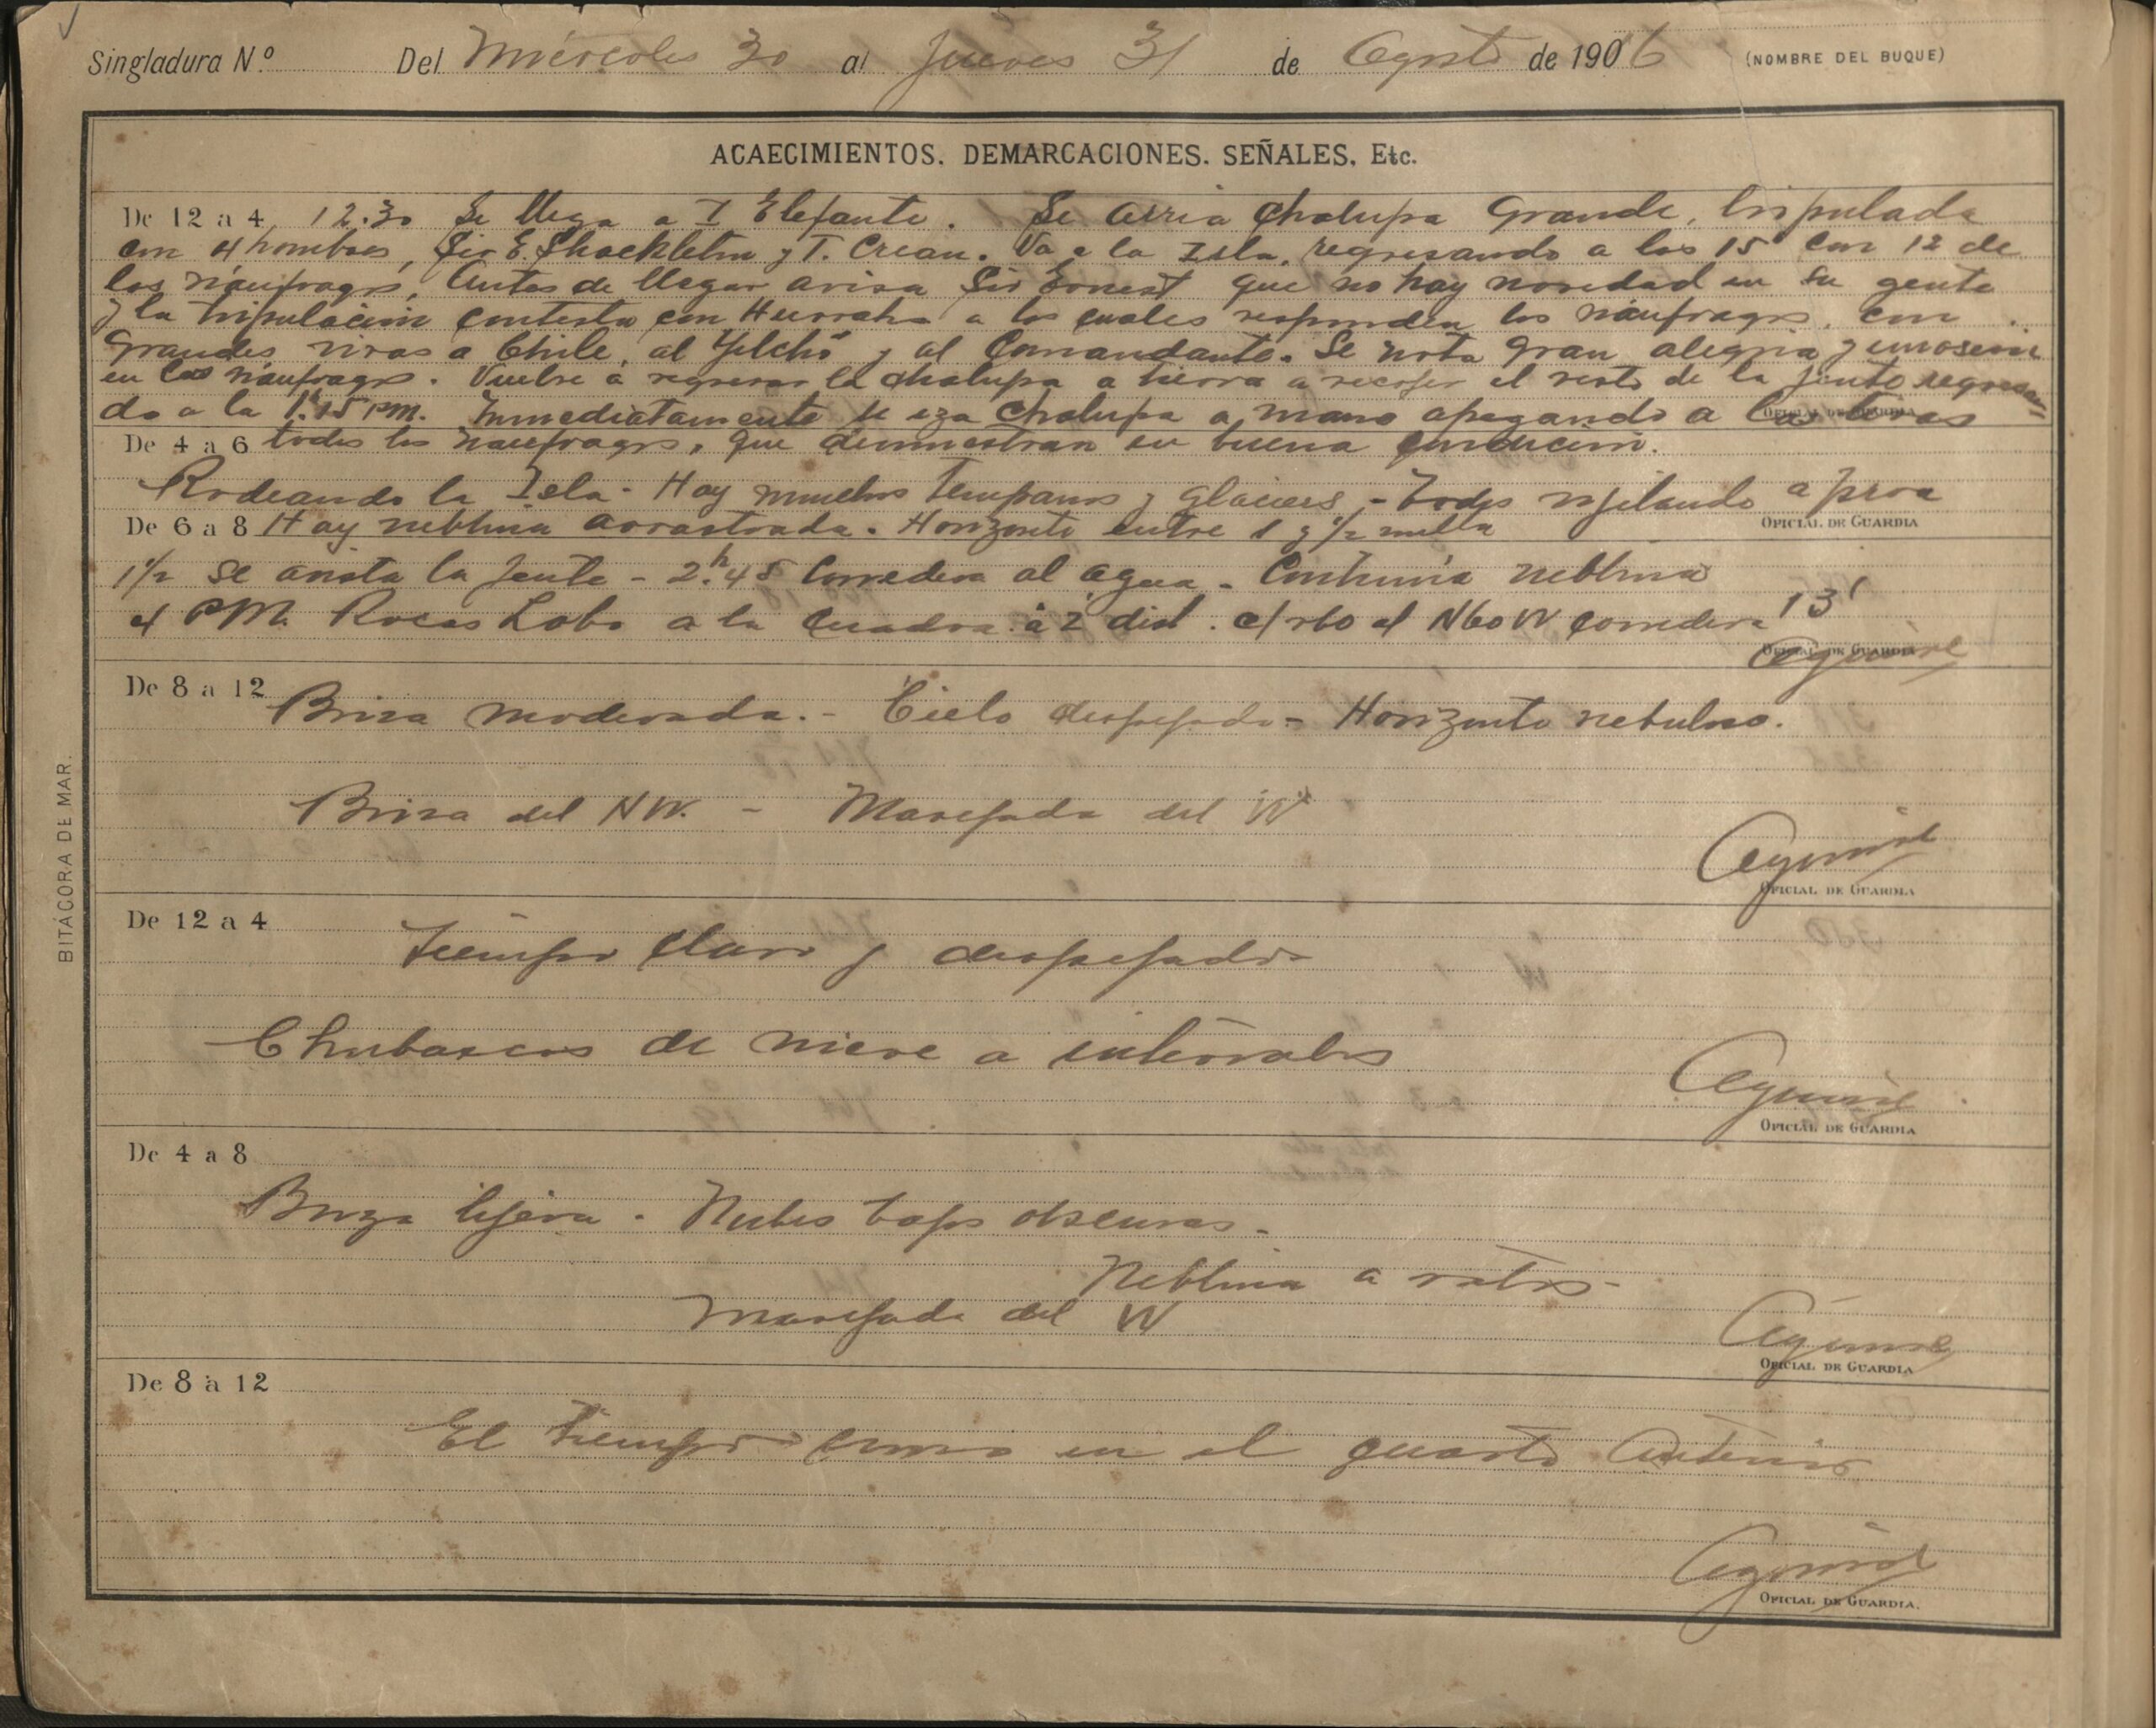 Singladura N.º Del Miércoles 30 al Jueves 31 de Agosto de 1906 (NOMBRE DEL BUQUE)
ACAECIMIENTOS. DEMARCACIONES. SEÑALES, Etc.
De 12 a 4 12.30 Se llega a I Elefante. Se arria chalupa grande, tripulada
con 4 hombres, Sir E. Shackleton y T. Crean. Va a la Isla, regresando a las 15 con 12 de
los náufragos, Antes de llegar avisa Sir Ernest que no hay novedad en su gente
y la tripulación contesta con Hurrahs a los cuales responden los náufragos, con
grandes vivas a Chile, al Yelcho y al Comandante. Se nota gran alegria y emoción
en los náufragos. Vuelve á regresar la chalupa a tierra a recojer el resto de la jente regresan=
do a la 1.15 P.M. Inmediatamente se iza chalupa a mano apegando a las tiras
OFICIAL DE GUARDIA
De 4 a 6 todos los naufragos, que demuestran su buena
Rodeando la Isla - Hay muchos Tempanos y glaciers, - Todos vijilando a proa
OFICIAL DE GUARDIA
De 6 a 8 Hay neblina arrastrada. Horizonte entre 1 y ½ milla
1½ se anota la jente - 2.h45 Corredera al agua - Continúa neblina
4 PM. Rocas Lobo a la cuadra á 2' dist. c/rbo al N60W corredera 13'
Aguirre
OFICIAL DE GUARDIA
De 8 a 12
Brisa moderada. - Cielo despejado - Horizonte nebuloso.
Brisa del NW. - Marejada del W
Aguirre
OFICIAL DE GUARDIA
De 12 a 4
Tiempo claro y despejado
Chubascos de nieve a intérvalos
Aguirre
OFICIAL DE GUARDIA
De 4 a 8
Briza lijera. Nubes bajas obscuras.
Neblina a ratos -
Marejada del W
Aguirre
OFICIAL DE GUARDIA
De 8 a 12
El tiempo como en el cuarto anterior
Aguirre
OFICIAL DE GUARDIA.
BITÁCORA DE MAR.